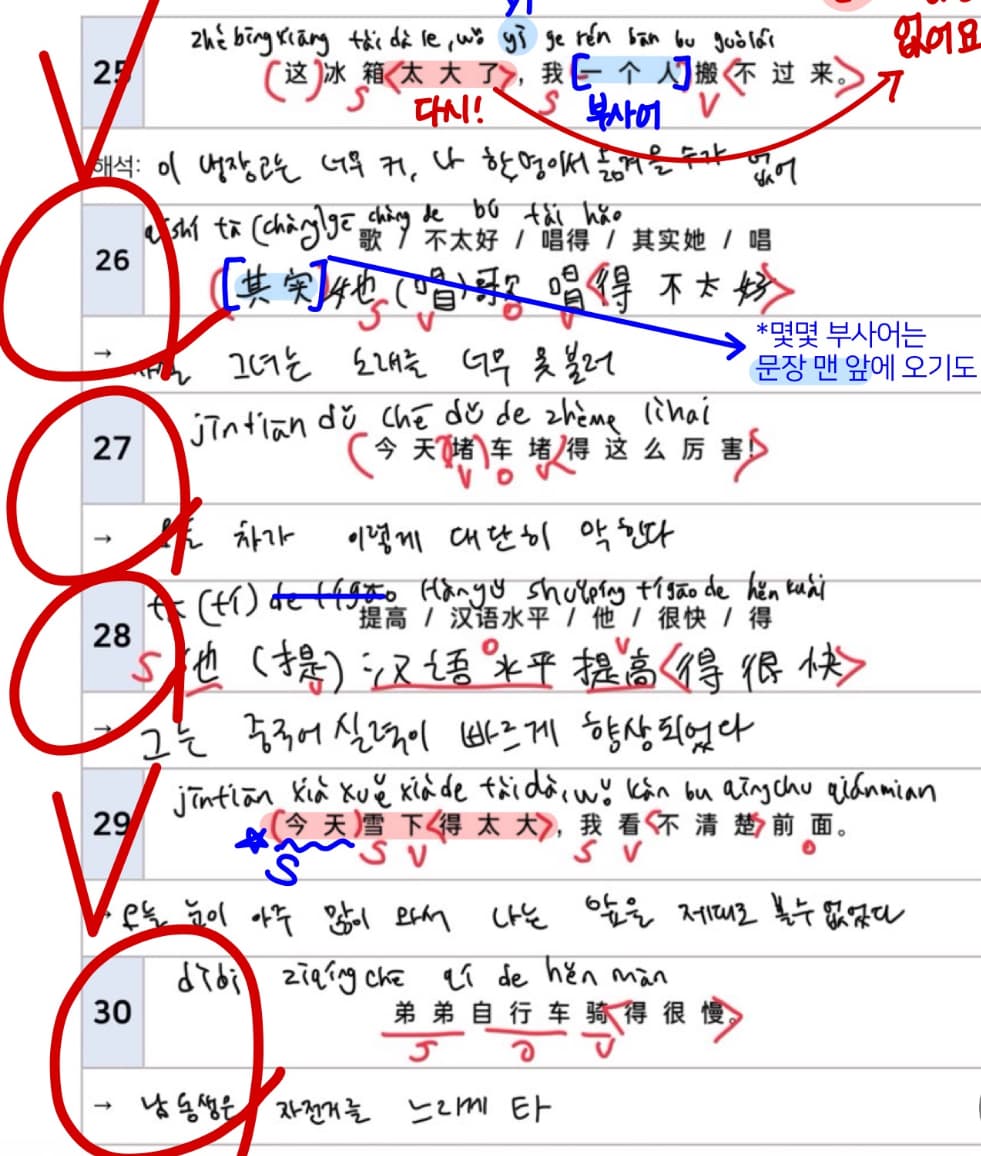 yī
없어요
zhè bīngxiāng tài dà le, wǒ yí ge rén bān bu guòlái
25 (这)冰箱<太大了>, 我[一个人]搬<不过来。>
S 다시! S 부사어 V
해석: 이 냉장고는 너무 커, 나 한명이서 옮겨올 수가 없어
qíshí tā (chàng)gē chàng de bú tài hǎo
26 歌 / 不太好 / 唱得 / 其实她 / 唱
([其实]她(唱)歌 唱<得 不太好>
S V O V
*몇몇 부사어는
문장 맨 앞에 오기도
→ 그녀는 노래를 너무 못불러
jīntiān dǔ chē dǔ de zhème lìhai
27 (今天(堵)车堵<得这么厉害!>
V O V
→ 오늘 차가 이렇게 대단히 막힌다
tā (tí) Hànyǔ shuǐpíng tígāo de hěn kuài
提高 / 汉语水平 / 他 / 很快 / 得
28 S 他 (提) 汉语水平 提高<得很快>
V O V
→ 그는 중국어 실력이 빠르게 향상되었다
jīntiān xià xuě xiàde tài dà, wǒ kàn bu qīngchu qiánmian
29 (今天)雪下<得太大>, 我看<不清楚>前面。
S S V S V O
→ 오늘 눈이 아주 많이 와서 나는 앞을 제대로 볼수 없었다
dìdi zìqíngchē qí de hěn màn
30 弟弟自行车骑<得很慢。>
S O V
→ 남동생은 자전거를 느리게 타